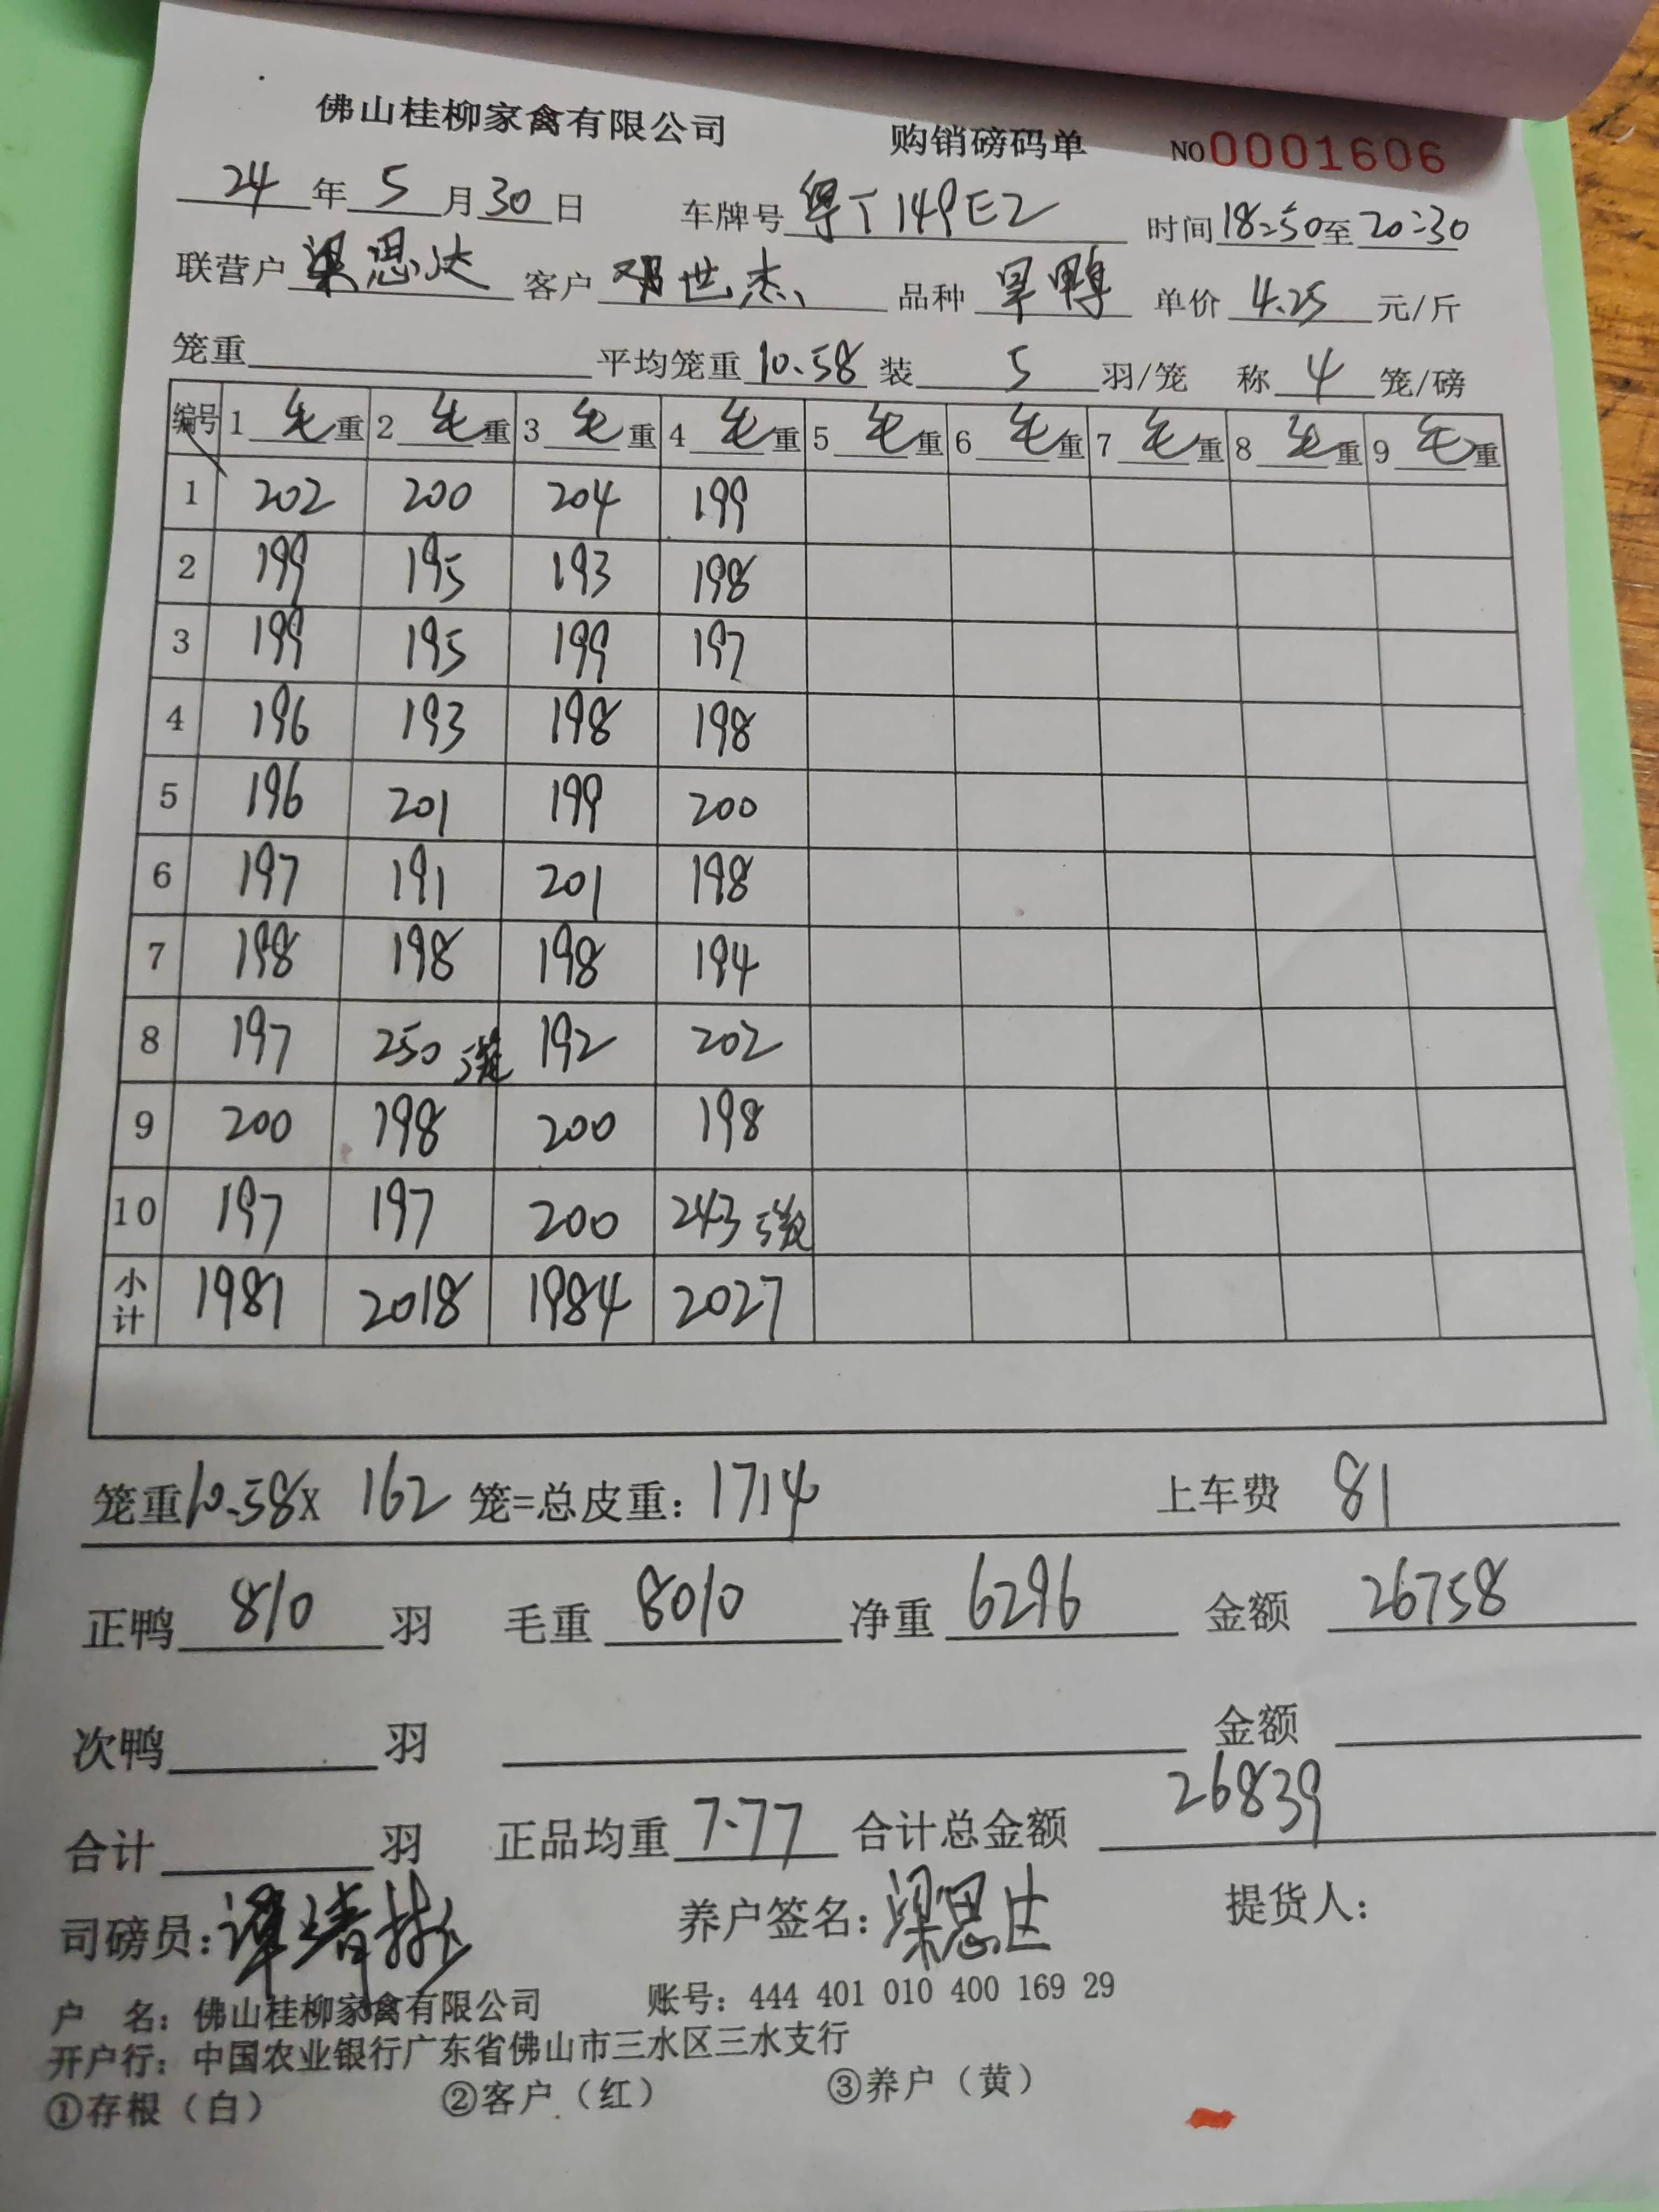 佛山桂柳家禽有限公司 购销磅码单 NO 0001606
24 年 5 月 30 日 车牌号 粤T149E2 时间 18:50 至 20:30
联营户 梁思达 客户 邓世杰 品种 旱鸭 单价 4.25 元/斤
笼重 平均笼重 10.58 装 5 羽/笼 称 4 笼/磅
编号 1 毛 重 2 毛 重 3 毛 重 4 毛 重 5 毛 重 6 毛 重 7 毛 重 8 毛 重 9 毛 重
1 202 200 204 199
2 199 195 193 198
3 199 195 199 197
4 196 193 198 198
5 196 201 199 200
6 197 191 201 198
7 198 198 198 194
8 197 250 5笼 192 202
9 200 198 200 198
10 197 197 200 243 5笼
小计 1981 2018 1984 2027
笼重 10.58 X 162 笼=总皮重: 1714 上车费 81
正鸭 810 羽 毛重 8010 净重 6296 金额 26758
次鸭 羽 金额
合计 羽 正品均重 7.77 合计总金额 26839
司磅员: 养户签名: 梁思达 提货人:
户 名: 佛山桂柳家禽有限公司 账号: 444 401 010 400 169 29
开户行: 中国农业银行广东省佛山市三水区三水支行
①存根(白) ②客户(红) ③养户(黄)